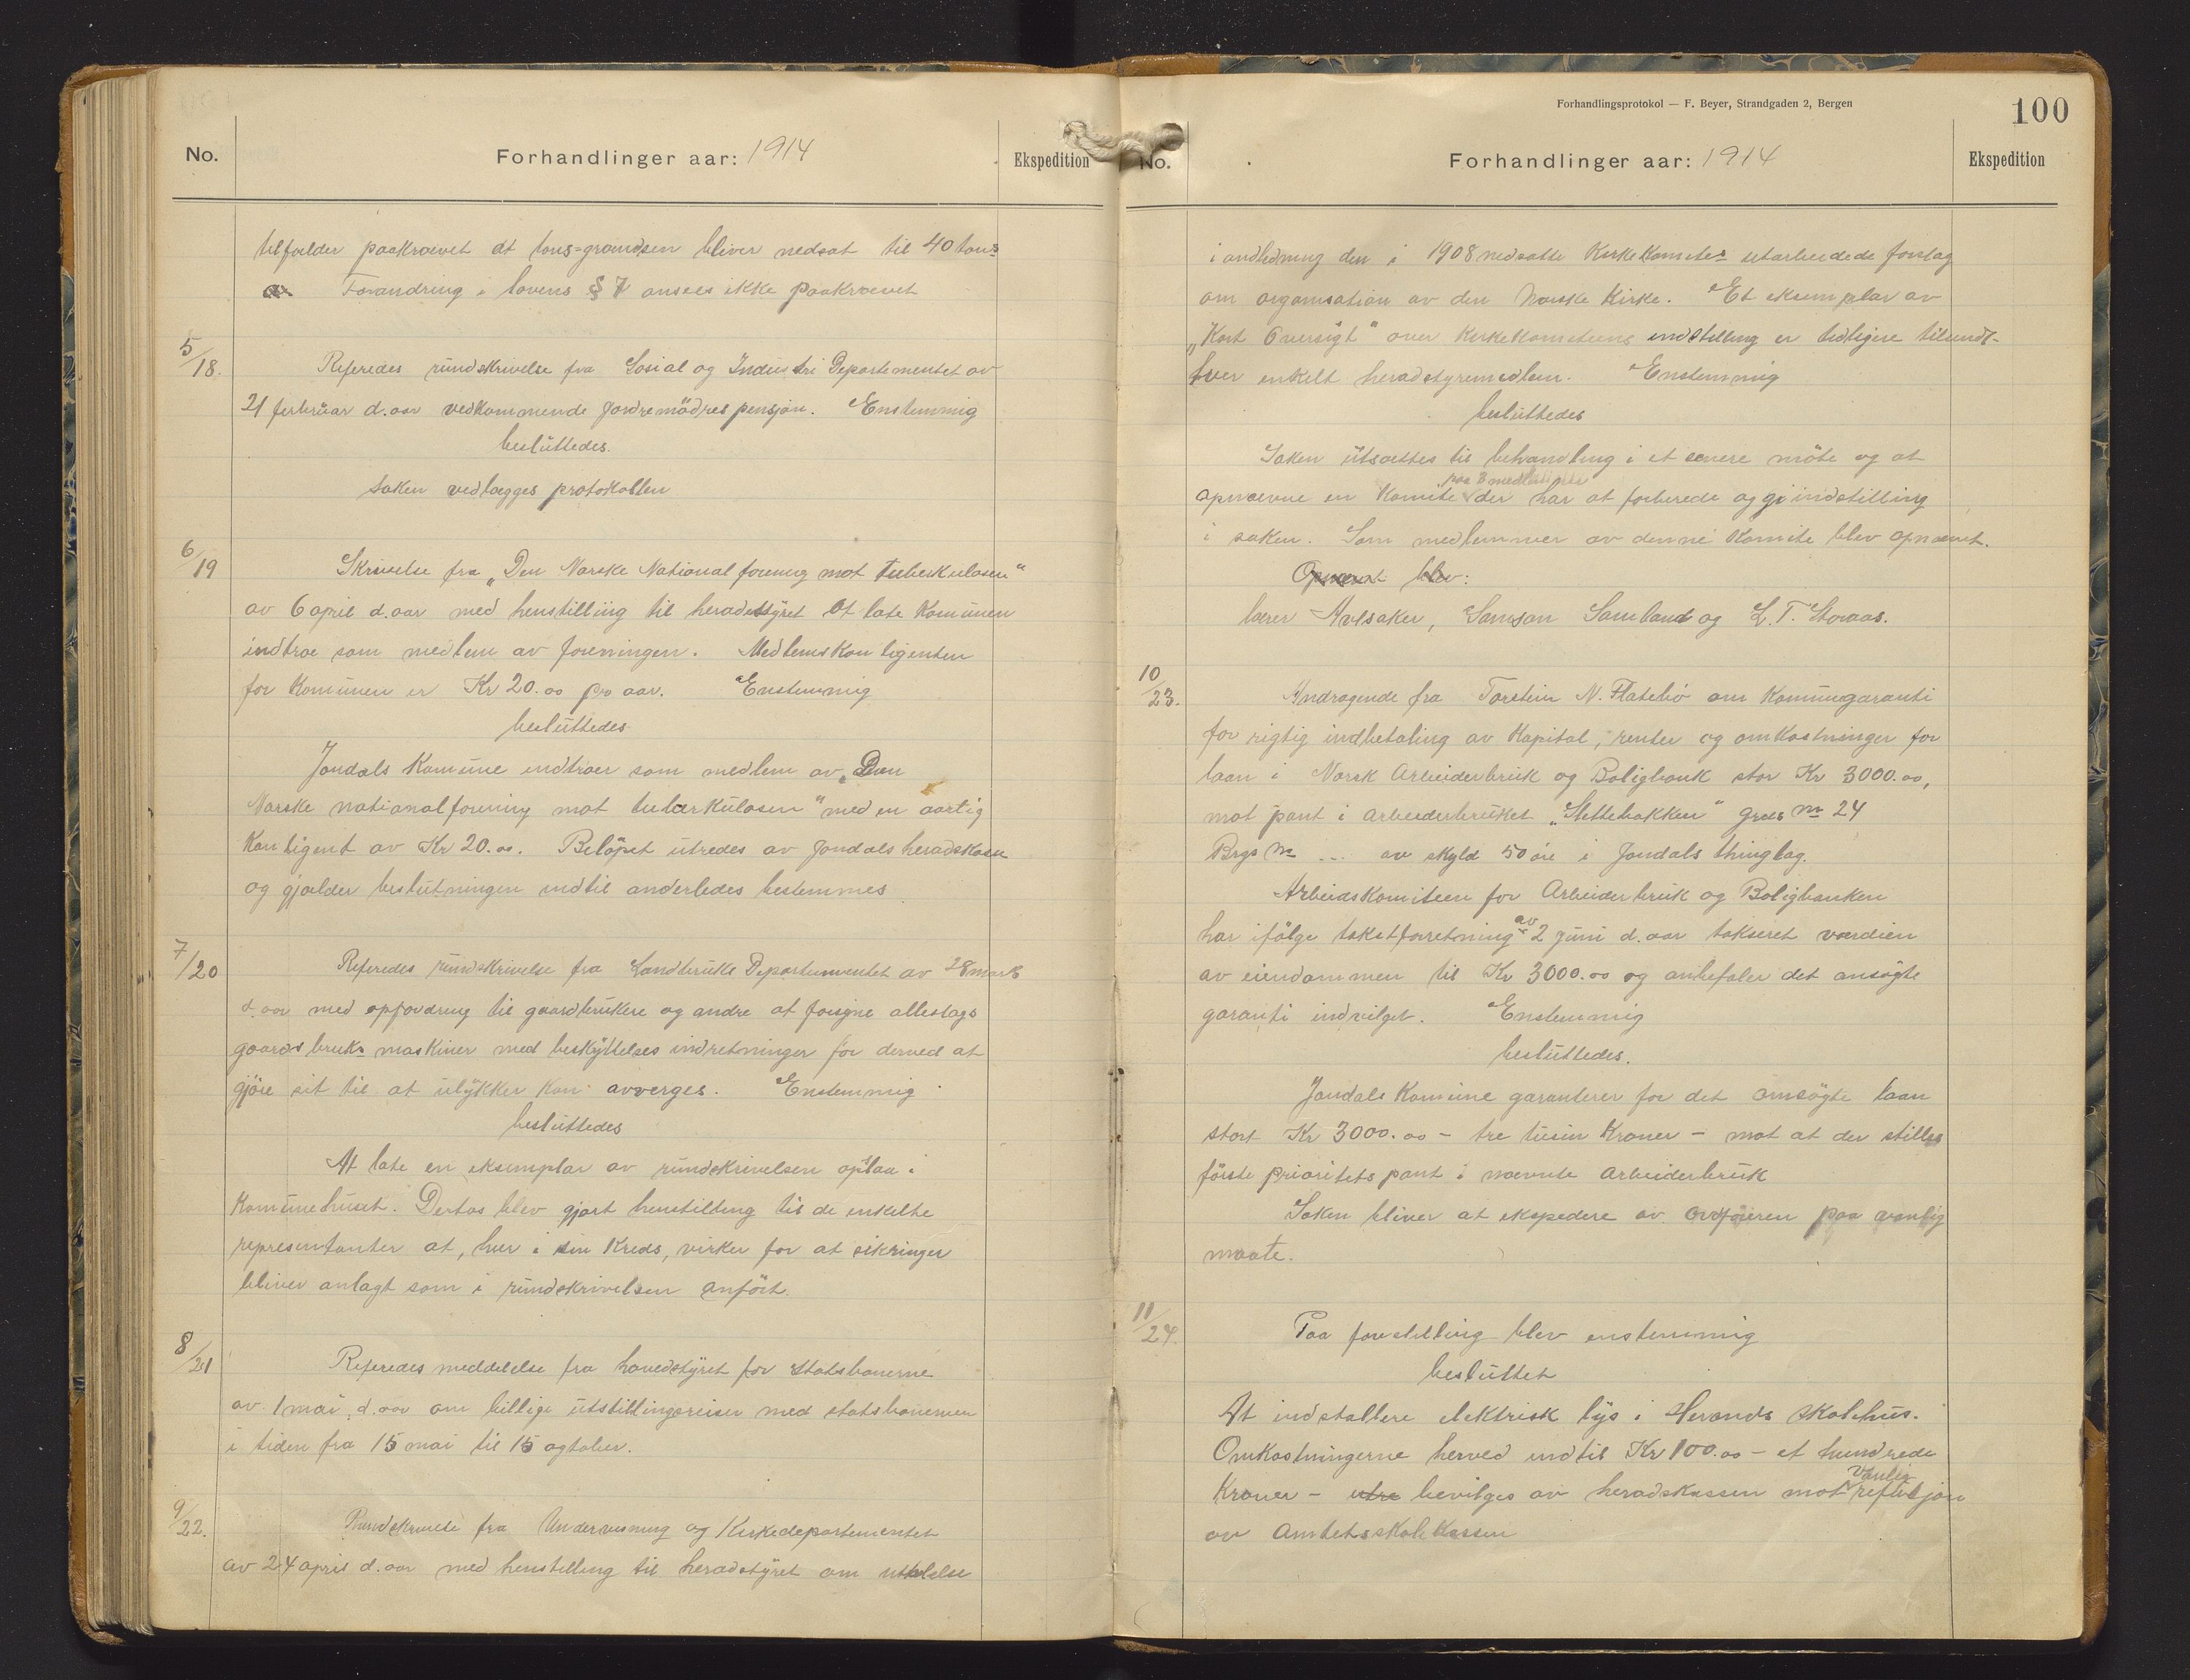 No.
Forhandlinger aar: 1914
Ekspedition
tilfælder paakrævet at tons=grændsen bliver nedsat til 40 tons
Forandring i lovens § 7 ansees ikke paakrævet
5/18.
Referedes rundskrivelse fra Sosial og Industri Departementet av
21 februar d. aar vedkommende Jordremödres pensjon. Enstemmig
besluttedes.
Saken vedlægges protokollen
6/19
Skrivelse fra „Den Norske National forening mot tuberkulosen"
av 6 april d. aar med henstilling til heradstyret at late Komunen
indtræ som medlem av foreningen. Medlemskontigenten
for Komunen er Kr 20.00 pro aar. Enstemmig
besluttedes
Jondals Komune indtræer som medlem av „Den
Norske nationalforening mot tuberkulosen" med en aarlig
Kontigent av Kr 20.00. Belöpet utredes av Jondals heradskasse
og gjælder beslutningen indtil anderledes bestemmes
7/20
Referedes rundskrivelse fra Landbruks Departementet av 28 mars
d. aar med opfordring til gaardbrukere og andre at forsyne alleslags
gaardsbruks maskiner med beskyttelses indretninger for derved at
gjöre sit til at ulykker kan avverges. Enstemmig
besluttedes
At late en eksemplar av rundskrivelsen opslaa i
Komunehuset. Dertos blev gjort henstilling til de enkelte
representanter at, hver i sin Kreds, virker for at sikringer
bliver anlagt som i rundskrivelsen anfört.
8/21
Referedes meddelelse fra hovedstyret for Statsbanerne
av 1 mai d. aar om billige utstillingsreiser med statsbanerne
i tiden fra 15 mai til 15 ogtober.
9/22.
Rundskrivelse fra Undervisning og Kirkedepartementet
av 24 april d. aar med henstilling til heradstyret om uttalelse
Forhandlingsprotokol — F. Beyer, Strandgaden 2, Bergen
100
No.
Forhandlinger aar: 1914
Ekspedition
i andledning den i 1908 nedsatte Kirkekomites utarbeidede forslag
om organisation av den Norske Kirke. Et eksemplar av
„Kort Oversigt" over Kirkekomiteens indstilling er tidligere tilsendt
hver enkelt heradstyremedlem. Enstemmig
besluttedes
Saken utsættes til behandling i et senere möte og at
paa 3 medlemmer
opnævne en Komite der har at forberede og gi indstilling
i saken. Som medlemmer av denne Komite blev opnævnt.
Opnævnt blev:
lærer Avlsaker, Samson Samland og L. T. Storaas.
10/23.
Andragende fra Torstein N. Flatebö om Komunegaranti
for rigtig indbetaling av Kapital, renter og omkostninger for
laan i Norsk Arbeiderbruk og Boligbank stor Kr 3000.00,
mot pant i arbeiderbruket „Slettebakken" Grds № 24
Brgs № ... av skyld 50 öre i Jondals thinglag.
Arbeidskomiteen for Arbeiderbruk og Boligbanken
har ifölge takstforretning av 2 juni d. aar takseret værdien
av eiendommen til Kr 3000.00 og anbefaler det ansögte
garanti indvilget. Enstemmig
besluttedes.
Jondals Komune garanterer for det omsögte laan
stort Kr 3000.00 – tre tusin Kroner – mot at der stilles
förste prioritets pant i nævnte arbeiderbruk
Saken bliver at ekspedere av ordföreren paa vanlig
maate.
11/24.
Paa forestilling blev enstemmig
besluttet
At indstallere elektrisk lys i Herands skolehus.
Omkostningerne herved indtil Kr 100.00 – et hundrede
Kroner – utre bevilges av heradskassen mot vanlig refusjon
av Amtetsskolekassen